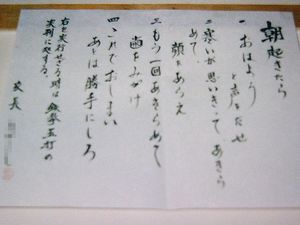 朝起きたら
一 おはよう
と声をだせ
二 寒いが思いきって あきら
めて
顔をあらえ
三 もう一回あきらめて
歯をみがけ
四 これでおしまい
あとは勝手にしろ
右を実行せざる時は 鉄拳五打の
実刑に処する。
家長